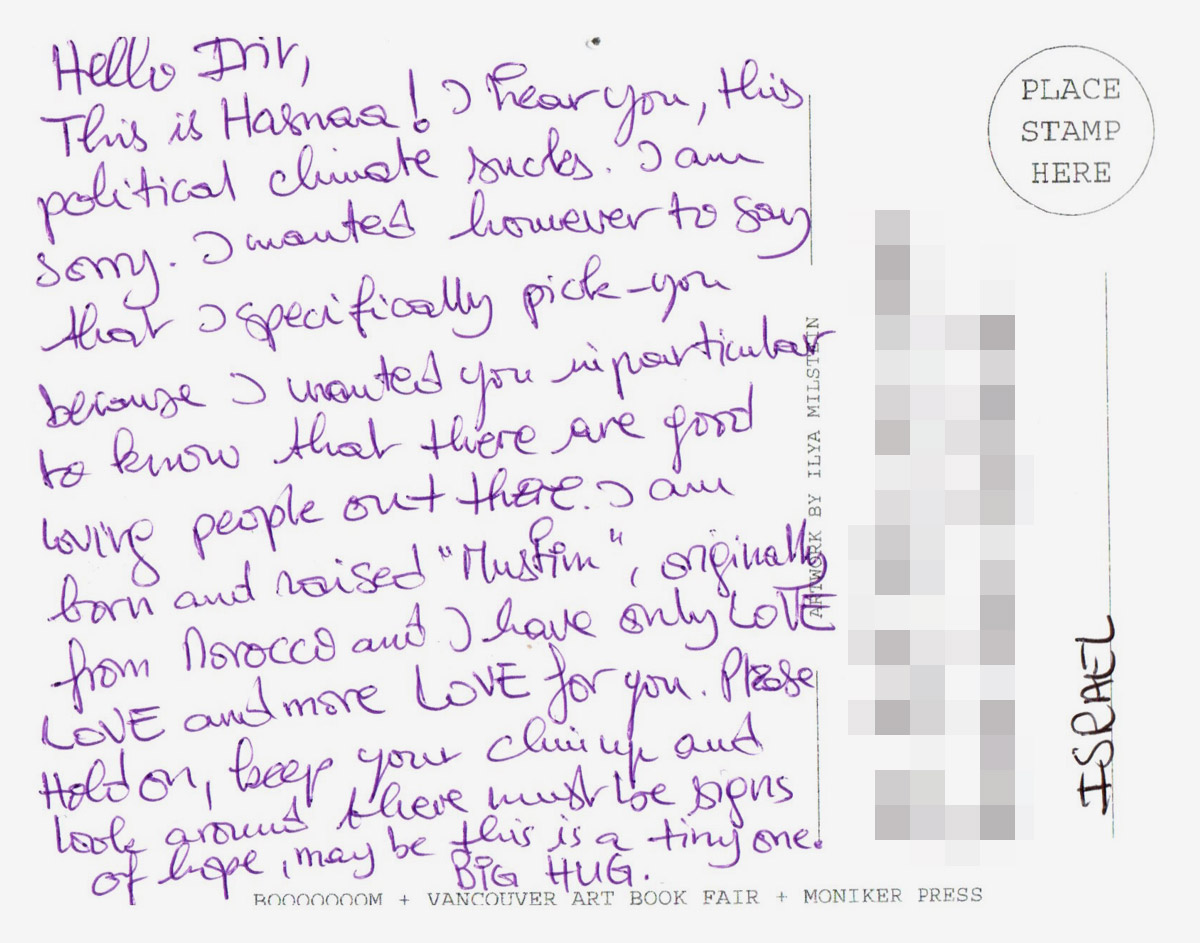 Hello Drir,
This is Hasnaa! I hear you, this
political climate sucks. I am
sorry. I wanted however to say
that I specifically pick-you
because I wanted you in particular
to know that there are good
loving people out there. I am
born and raised "Muslim", originally
from Morocco and I have only LOVE
LOVE and more LOVE for you. Please
Hold on, keep your chin up and
look around there must be signs
of hope, may be this is a tiny one.
BIG HUG.
PLACE
STAMP
HERE
ARTWORK BY ILYA MILSTEIN
ISRAEL
BOOOOOOOM + VANCOUVER ART BOOK FAIR + MONIKER PRESS